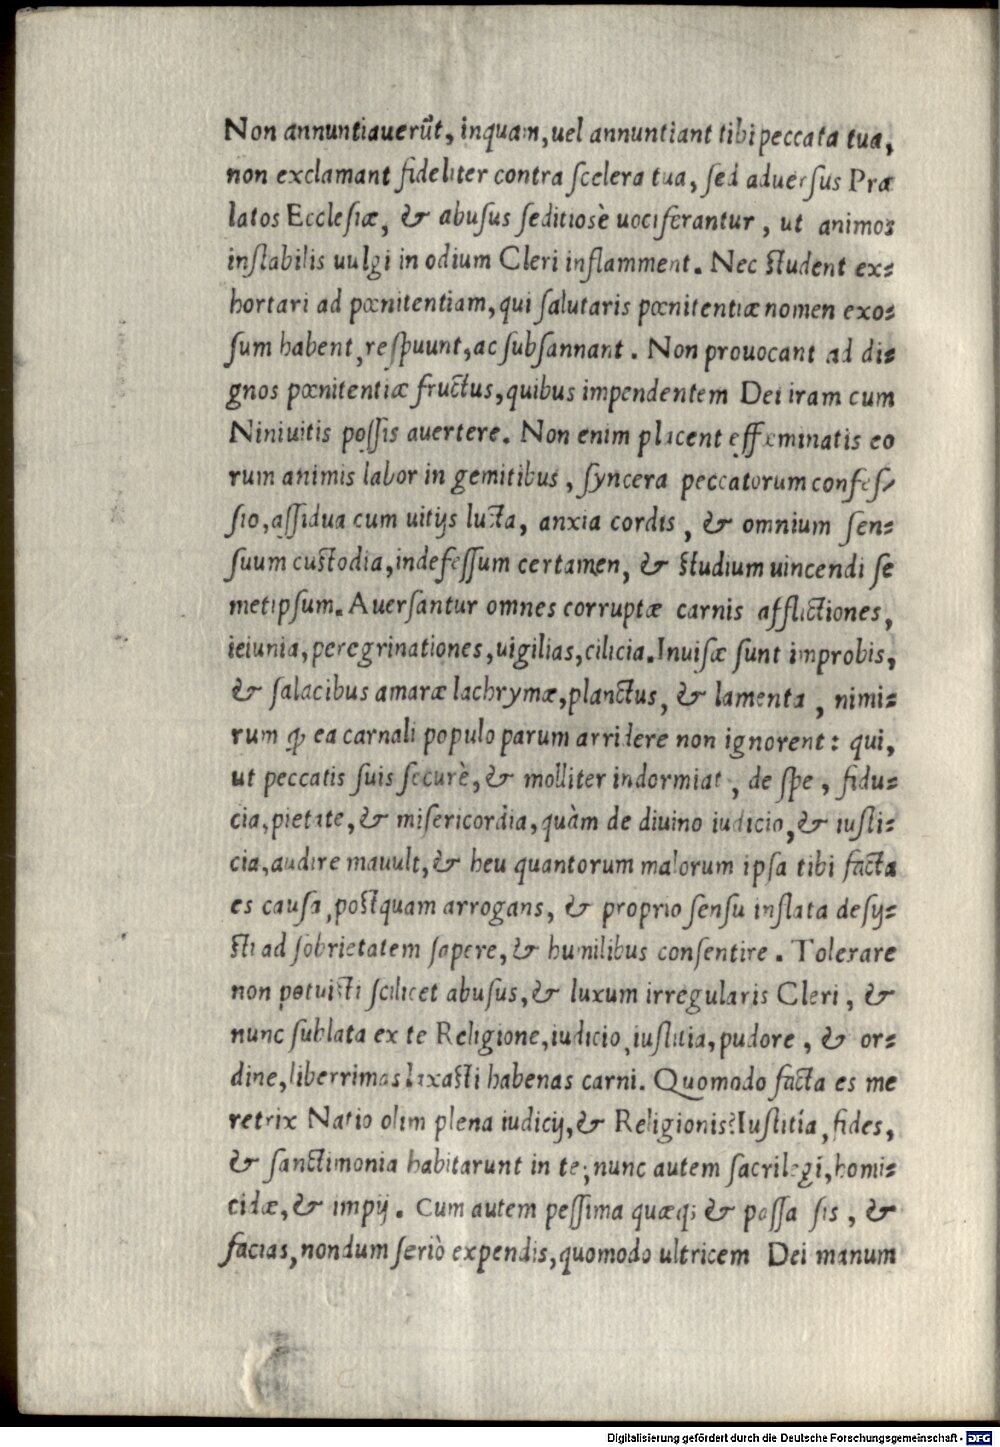 Non annuntiauerũt, inquam, uel annuntiant tibi peccata tua,
non exclamant fideliter contra ſcelera tua, ſed aduerſus Præ
latos Eccleſiæ, & abuſus ſeditiosè uociferantur, ut animos
inſtabilis uulgi in odium Cleri inflamment. Nec ſtudent ex=
hortari ad pœnitentiam, qui ſalutaris pœnitentiæ nomen exo=
ſum habent, reſpuunt, ac ſubſannant. Non prouocant ad di=
gnos pœnitentiæ fructus, quibus impendentem Dei iram cum
Niniuitis poſſis auertere. Non enim placent effœminatis eo
rum animis labor in gemitibus, ſyncera peccatorum confeſ=
ſio, aſſidua cum uitijs lucta, anxia cordis, & omnium ſen=
ſuum cuſtodia, indefeſſum certamen, & ſtudium uincendi ſe
metipſum. Auerſantur omnes corruptæ carnis afflictiones,
ieiunia, peregrinationes, uigilias, cilicia. Inuiſæ ſunt improbis,
& ſalacibus amaræ lachrymæ, planctus, & lamenta, nimi=
rum ꝙ ea carnali populo parum arridere non ignorent: qui,
ut peccatis ſuis ſecurè, & molliter indormiat, de ſpe, fidu=
cia, pietate, & miſericordia, quàm de diuino iudicio, & iuſti=
cia, audire mauult, & heu quantorum malorum ipſa tibi facta
es cauſa, poſtquam arrogans, & proprio ſenſu inflata deſy=
ſti ad ſobrietatem ſapere, & humilibus conſentire. Tolerare
non potuiſti ſcilicet abuſus, & luxum irregularis Cleri, &
nunc ſublata ex te Religione, iudicio, iuſtitia, pudore, & or=
dine, liberrimas laxaſti habenas carni. Quomodo facta es me
retrix Natio olim plena iudicij, & Religionis? Iuſtitia, fides,
& ſanctimonia habitarunt in te; nunc autem ſacrilegi, homi=
cidæ, & impij. Cum autem peſſima quæq; & paſſa ſis, &
facias, nondum ſeriò expendis, quomodo ultricem Dei manum
Digitalisierung gefördert durch die Deutsche Forschungsgemeinschaft - DFG